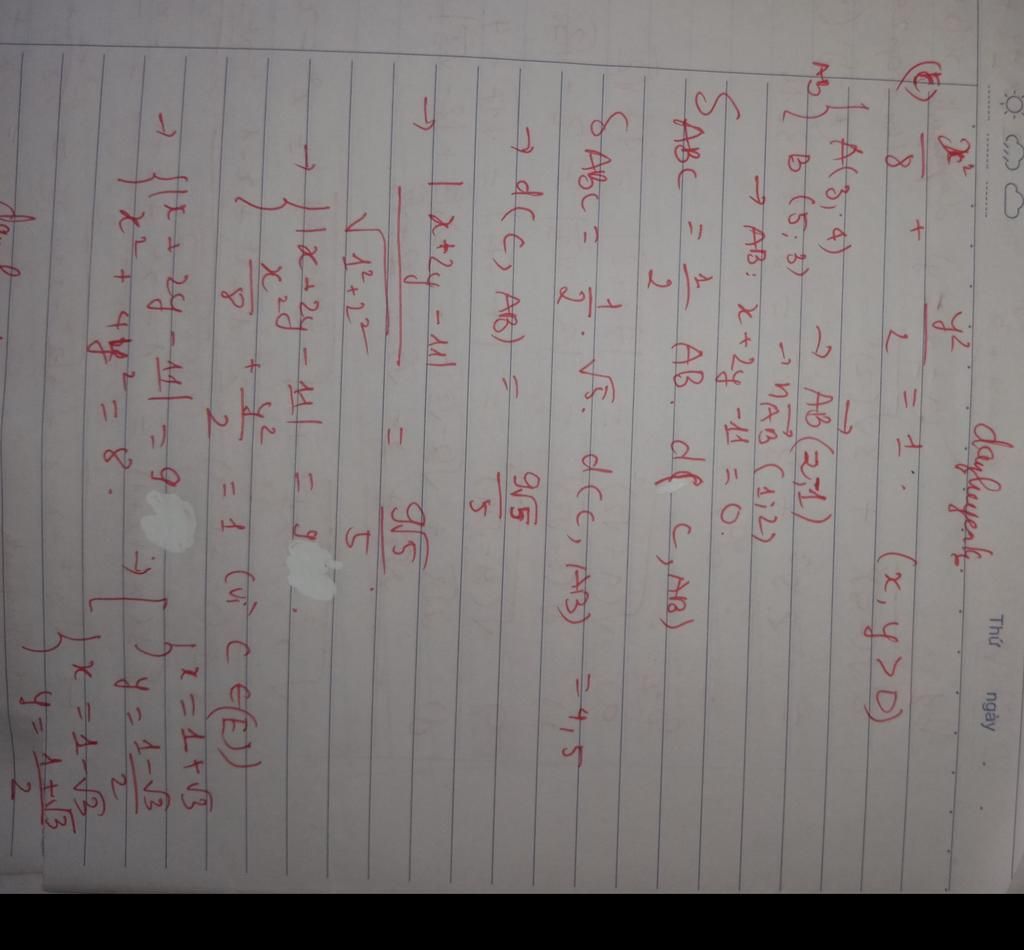 Thứ ngày
dayhuyenk
(E) x²/8 + y²/2 = 1. (x, y > 0)
AB { A(3;4) → AB→(2;-1)
B (5;3) → n→AB (1;2)
→ AB: x + 2y - 11 = 0.
S ABC = 1/2 AB. d( C, AB)
S ABC = 1/2 . √5. d(C, AB) = 4,5
→ d(C, AB) = 9√5/5
→ |x+2y - 11| / √1²+2² = 9√5/5.
→ { |x + 2y - 11| = 9.
x²/8 + y²/2 = 1 (vì C ∈ (E))
→ { |x + 2y - 11| = 9
x² + 4y² = 8.
→ [ { x = 1 + √3
y = 1-√3/2
{ x = 1 - √3
y = 1+√3/2